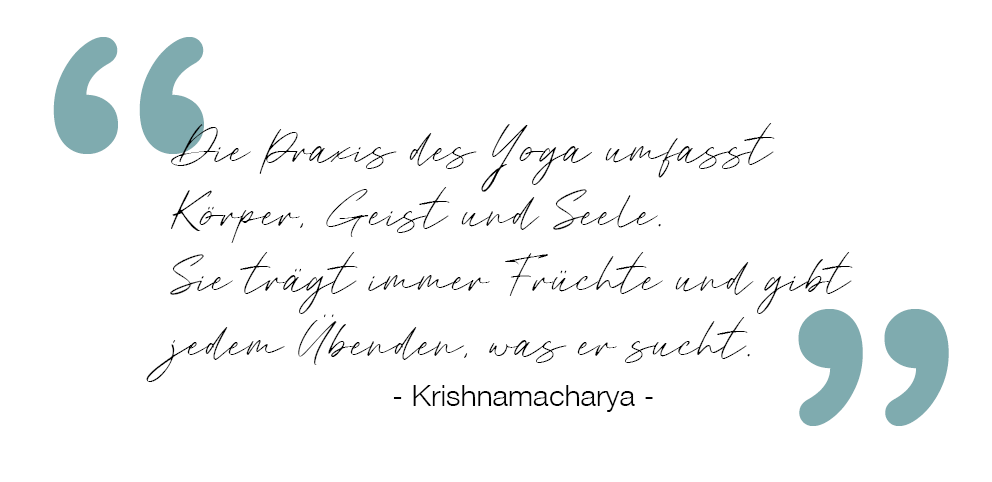 Die Praxis des Yoga umfasst
Körper, Geist und Seele.
Sie trägt immer Früchte und gibt
jedem Übenden, was er sucht.
- Krishnamacharya -